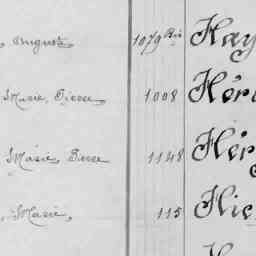 , August 1079 Bis Hay
Marie, Pierre 1008 Hér
Marie, Pierre 1148 Hér
, Marie, 115